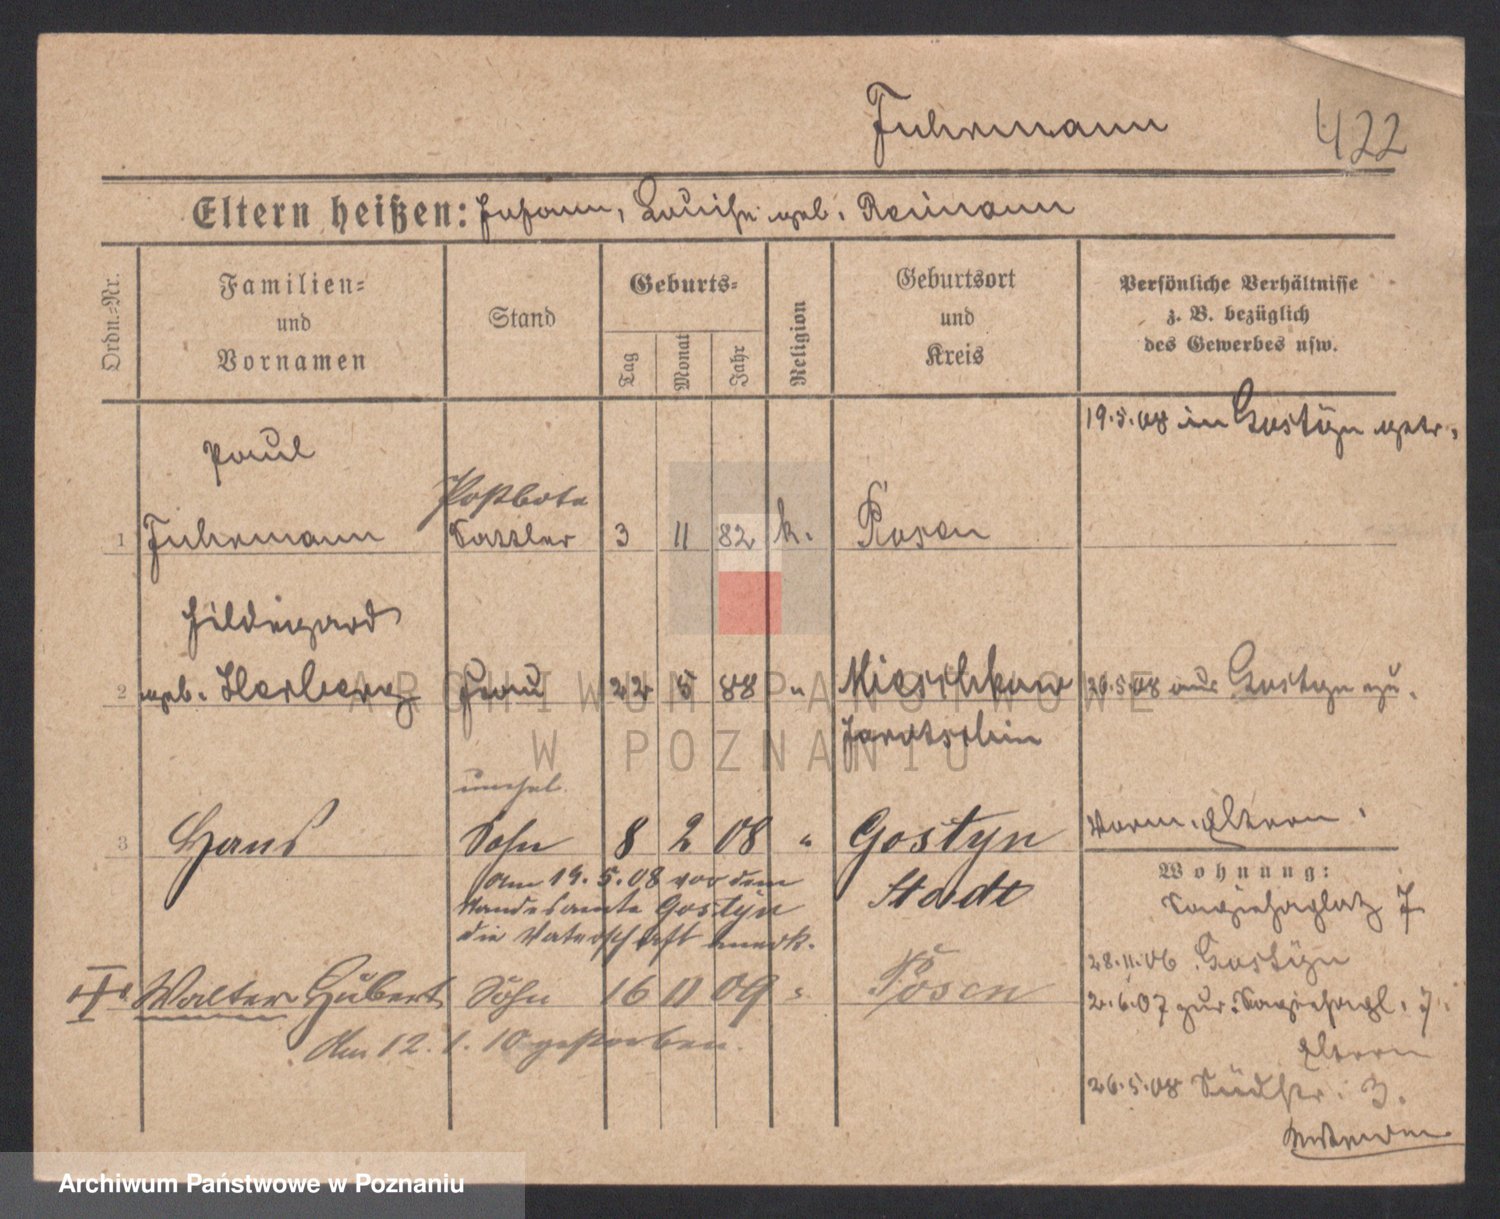 Fuhrmann
422
Eltern heißen: Johann, Louise geb. Reimann
Ordn.-Nr.
Familien-
und
Vornamen
Stand
Geburts-
Tag
Monat
Jahr
Religion
Geburtsort
und
Kreis
Persönliche Verhältnisse
z. B. bezüglich
des Gewerbes usw.
19.5.08 in Gostyn getr.
Paul
Postbote
1 Fuhrmann Sattler 3 11 82 k. Posen
Hildegard
2 geb. Herberg Frau 22 5 88 " Mieschkow 26.5.08 aus Gostyn zu.
Jarotschin
unehel.
3 Hans Sohn 8 2 08 " Gostyn
Stadt
Am 19.5.08 vor dem
Standesamte Gostyn
die Vaterschaft anerk.
Vorm. Eltern.
Wohnung:
Sapiehaplatz 7
28.11.06 Gostyn
2.6.07 zur. Sapiehapl. 7.
Eltern
26.5.08 Südstr. 3.
4. Walter Hubert Sohn 16 11 09 " Posen
Am 12.1.10 gestorben.
ARCHIWUM PAŃSTWOWE
W POZNANIU
Archiwum Państwowe w Poznaniu